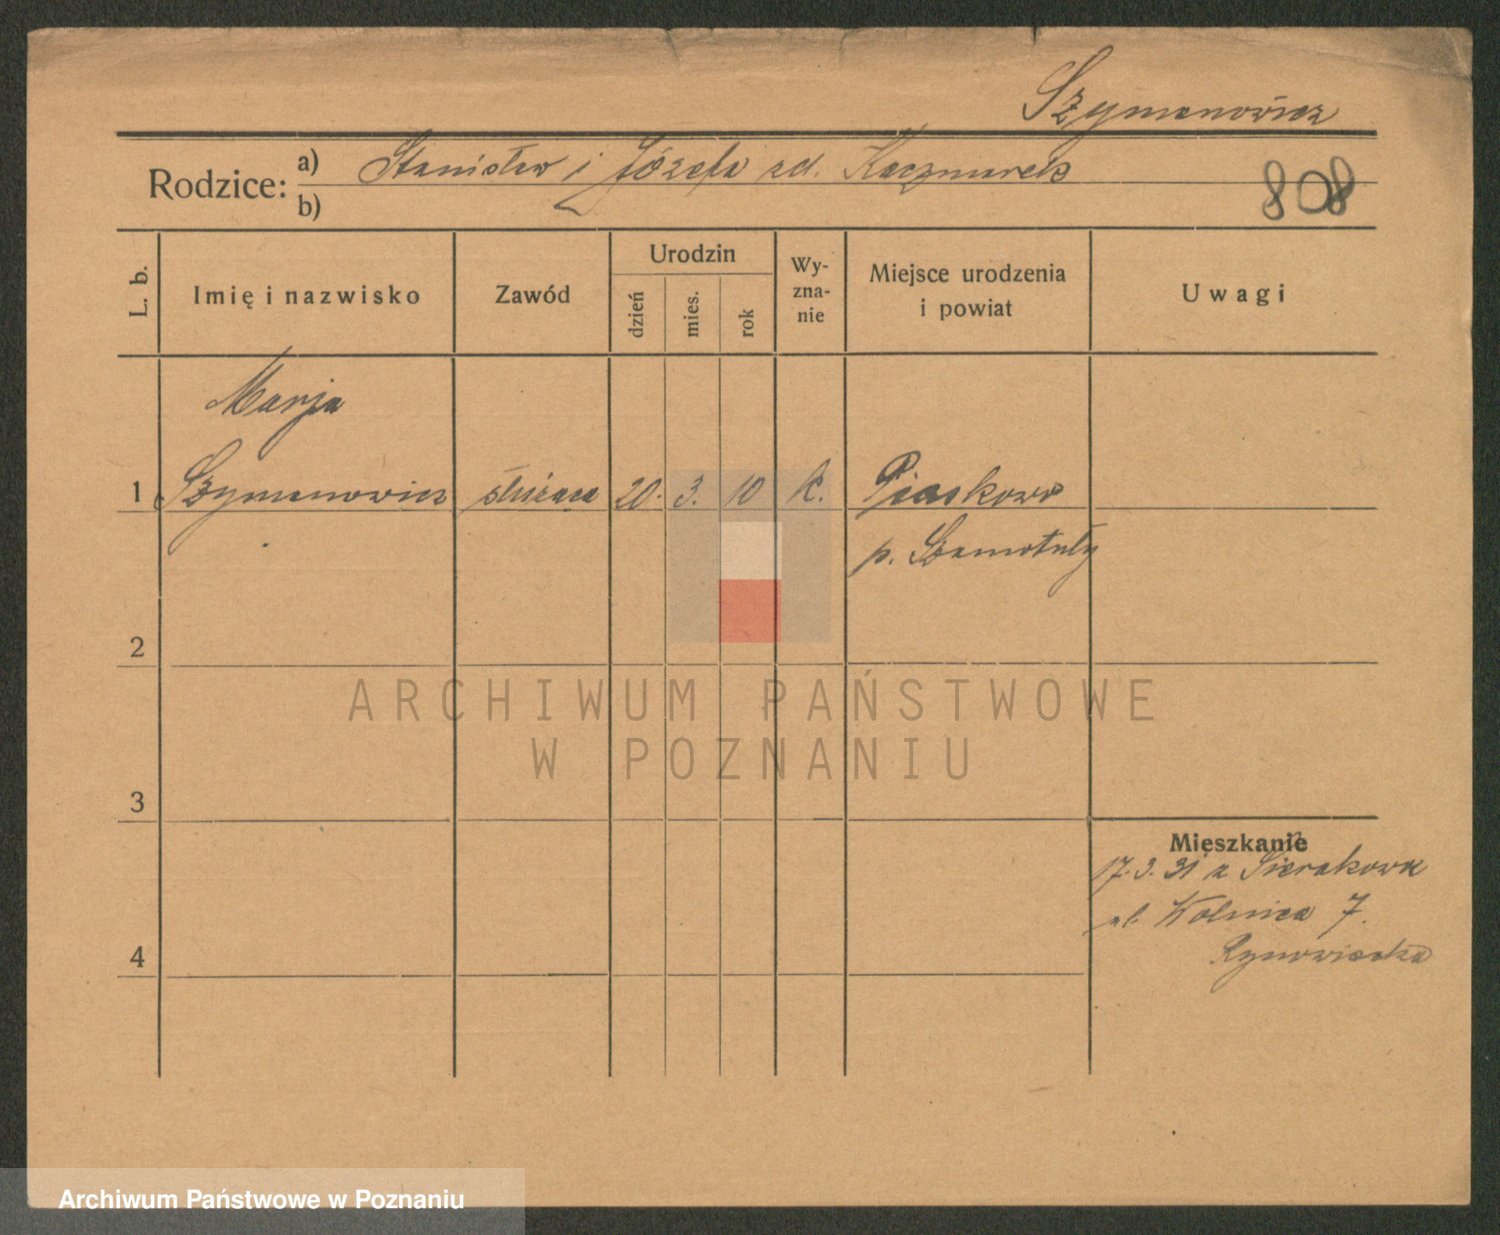 Szymanowicz
Rodzice: a) Stanisław i Józefa zd. Kaczmarek
b)
808
L. b.
Imię i nazwisko
Zawód
Urodzin
dzień
mies.
rok
Wy-
zna-
nie
Miejsce urodzenia
i powiat
Uwagi
Marja
1 Szymanowicz służąca 20. 3. 10 k. Piaskowo
p. Szamotuły
2
3
4
Mieszkanie
17.3.31 z Sierakowa
ul. Wolnica 7.
ARCHIWUM PAŃSTWOWE
W POZNANIU
Archiwum Państwowe w Poznaniu